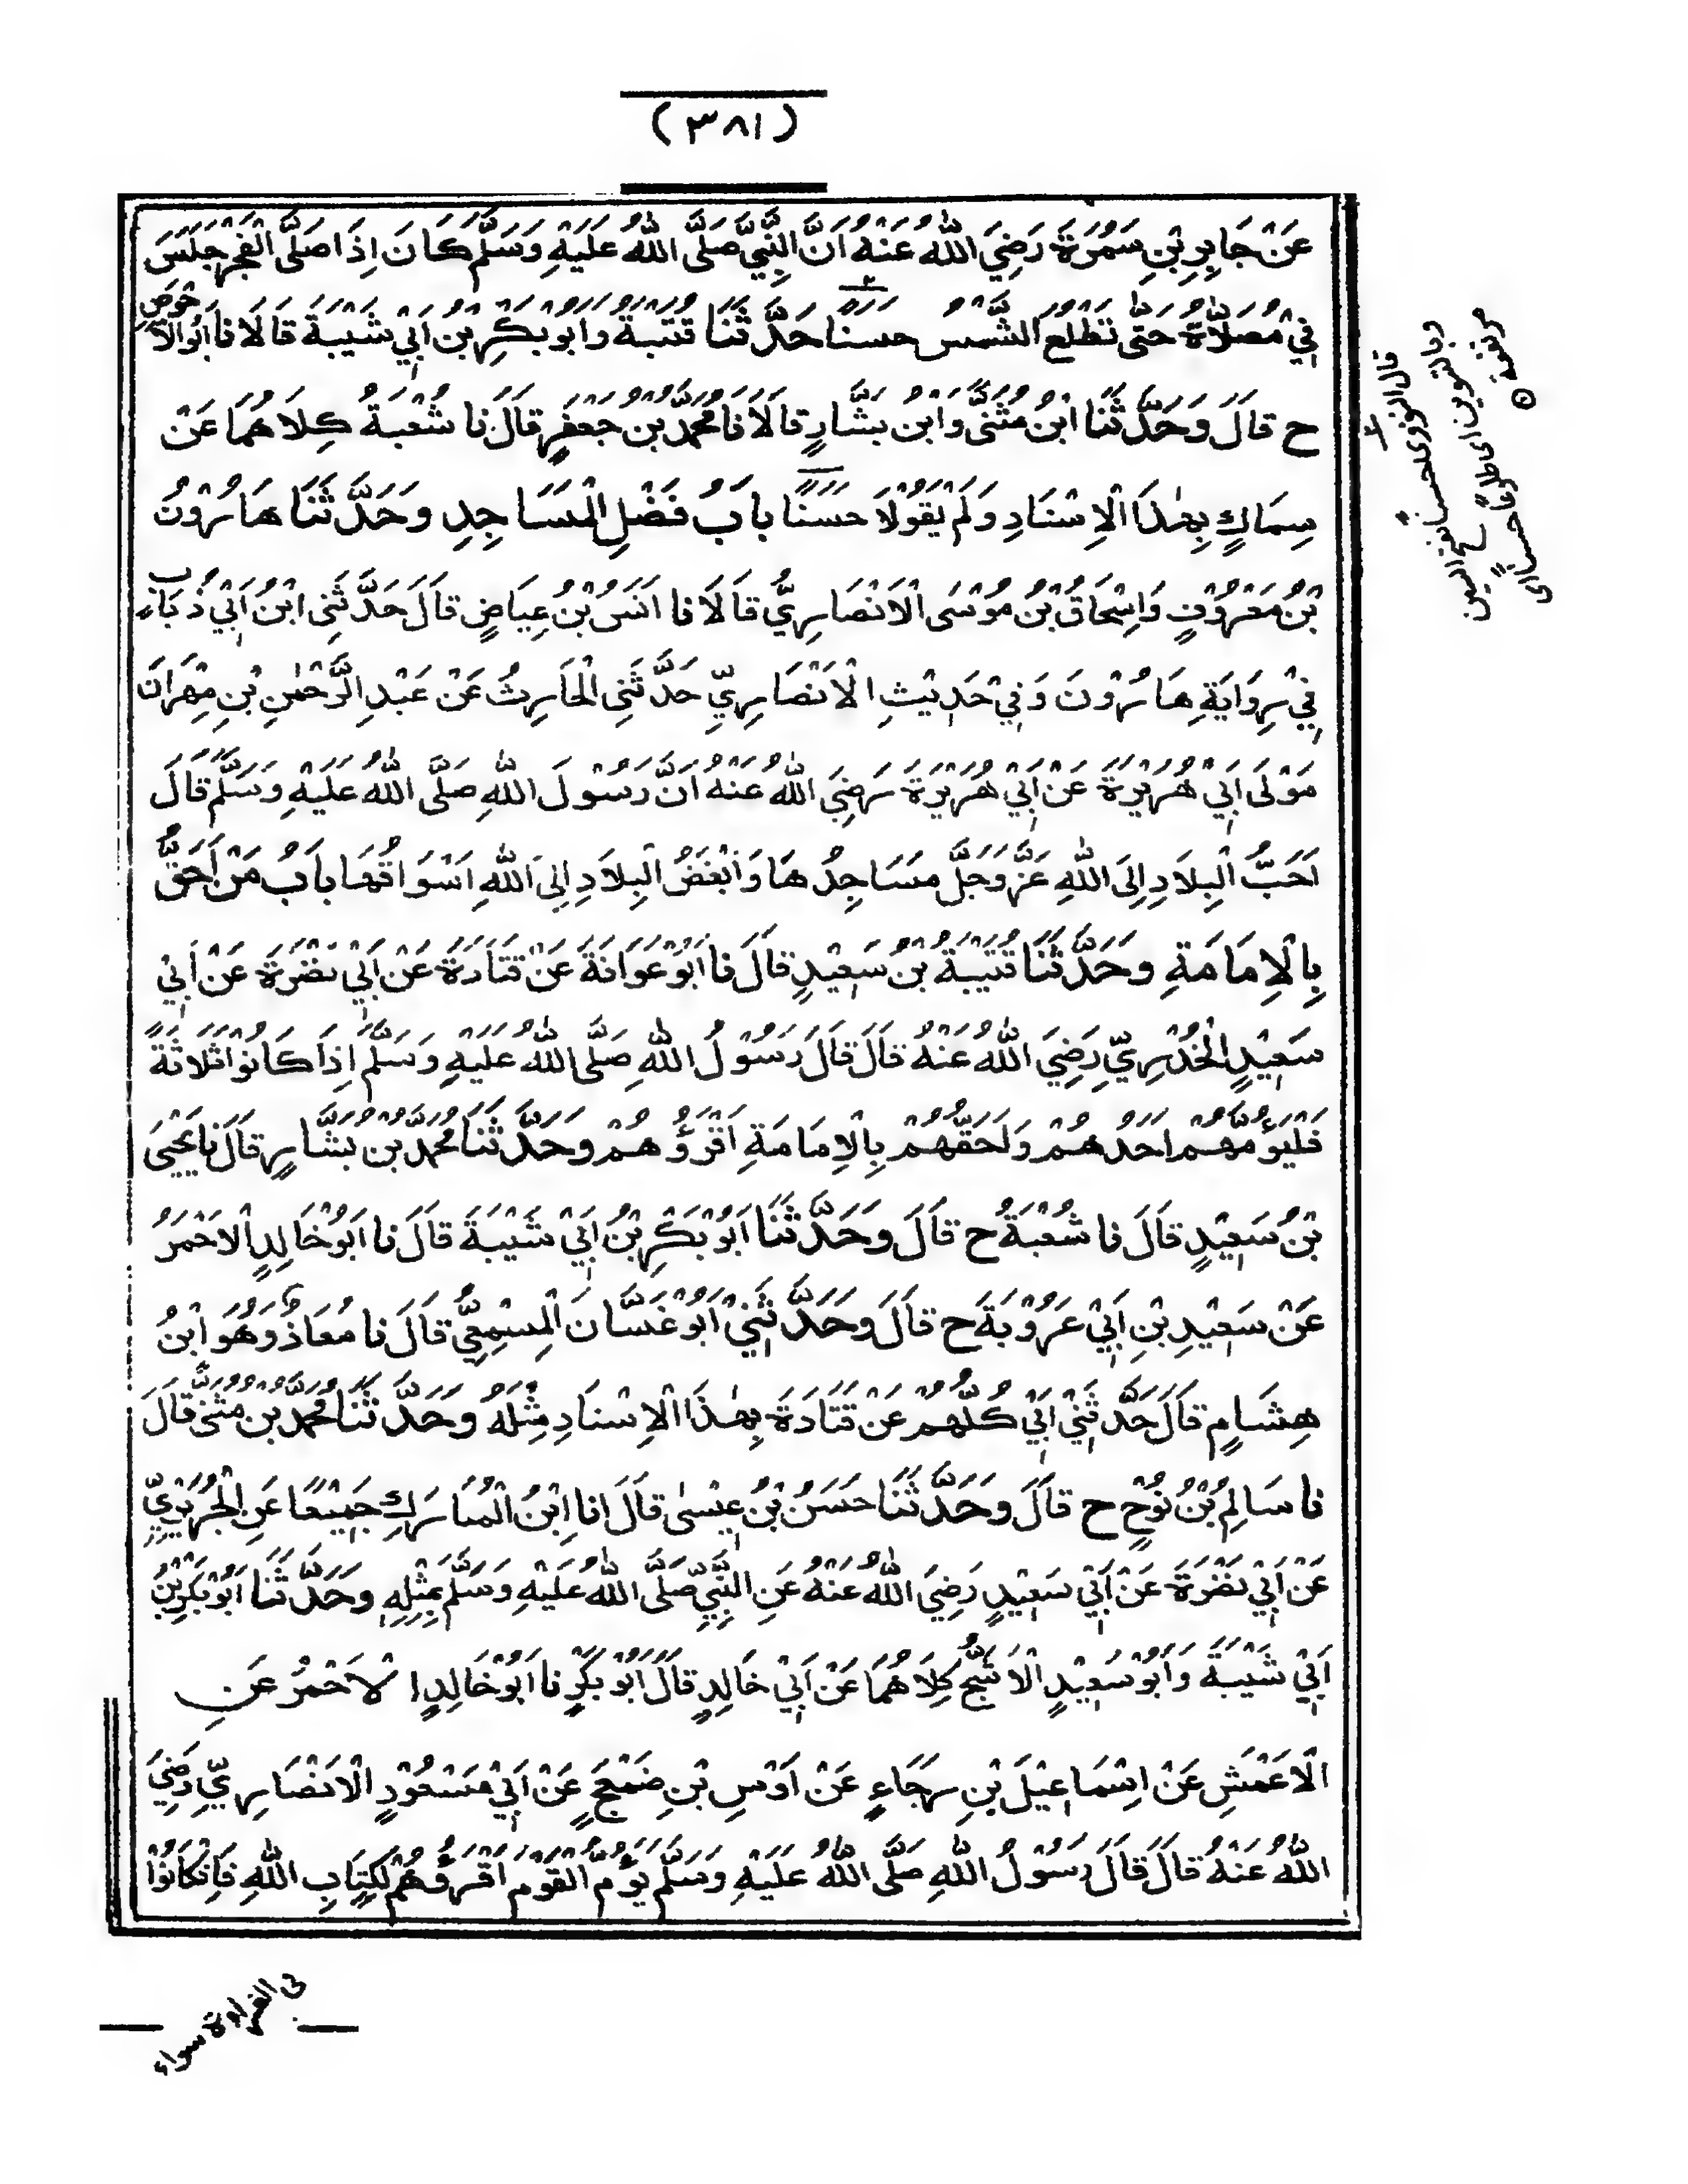 (٣٨١)
عَنْ جَابِرِ بْنِ سَمُرَةَ رَضِيَ اللّٰهُ عَنْهُ اَنَّ النَّبِيَّ صَلَّى اللّٰهُ عَلَيْهِ وَسَلَّمَ كَانَ اِذَا صَلَّى الْفَجْرَ جَلَسَ
فِيْ مُصَلَّاهُ حَتّٰى تَطْلُعَ الشَّمْسُ حَسَنًا حَدَّثَنَا قُتَيْبَةُ وَاَبُوْ بَكْرِ بْنُ اَبِيْ شَيْبَةَ قَالَا نَا اَبُو الْاَحْوَصِ
ح قَالَ وَحَدَّثَنَا ابْنُ مُثَنًّى وَابْنُ بَشَّارٍ قَالَا نَا مُحَمَّدُ بْنُ جَعْفَرٍ قَالَ نَا شُعْبَةُ كِلَاهُمَا عَنْ
سِمَاكٍ بِهٰذَا الْاِسْنَادِ وَلَمْ يَقُوْلَا حَسَنًا بَابُ فَضْلِ الْمَسَاجِدِ وَحَدَّثَنَا هَارُوْنُ
بْنُ مَعْرُوْفٍ وَاِسْحَاقُ بْنُ مُوْسَى الْاَنْصَارِيُّ قَالَا نَا اَنَسُ بْنُ عِيَاضٍ قَالَ حَدَّثَنِى ابْنُ اَبِيْ ذُبَابٍ
فِيْ رِوَايَةِ هَارُوْنَ وَفِيْ حَدِيْثِ الْاَنْصَارِيِّ حَدَّثَنِى الْحَارِثُ عَنْ عَبْدِ الرَّحْمٰنِ بْنِ مِهْرَانَ
مَوْلَى اَبِيْ هُرَيْرَةَ عَنْ اَبِيْ هُرَيْرَةَ رَضِيَ اللّٰهُ عَنْهُ اَنَّ رَسُوْلَ اللّٰهِ صَلَّى اللّٰهُ عَلَيْهِ وَسَلَّمَ قَالَ
اَحَبُّ الْبِلَادِ اِلَى اللّٰهِ عَزَّ وَجَلَّ مَسَاجِدُهَا وَاَبْغَضُ الْبِلَادِ اِلَى اللّٰهِ اَسْوَاقُهَا بَابُ مَنْ اَحَقُّ
بِالْاِمَامَةِ وَحَدَّثَنَا قُتَيْبَةُ بْنُ سَعِيْدٍ قَالَ نَا اَبُوْ عَوَانَةَ عَنْ قَتَادَةَ عَنْ اَبِيْ نَضْرَةَ عَنْ اَبِيْ
سَعِيْدٍ الْخُدْرِيِّ رَضِيَ اللّٰهُ عَنْهُ قَالَ قَالَ رَسُوْلُ اللّٰهِ صَلَّى اللّٰهُ عَلَيْهِ وَسَلَّمَ اِذَا كَانُوْا ثَلَاثَةً
فَلْيَؤُمَّهُمْ اَحَدُهُمْ وَاَحَقُّهُمْ بِالْاِمَامَةِ اَقْرَؤُهُمْ وَحَدَّثَنَا مُحَمَّدُ بْنُ بَشَّارٍ قَالَ نَا يَحْيَى
بْنُ سَعِيْدٍ قَالَ نَا شُعْبَةُ ح قَالَ وَحَدَّثَنَا اَبُوْ بَكْرِ بْنُ اَبِيْ شَيْبَةَ قَالَ نَا اَبُوْ خَالِدٍ الْاَحْمَرُ
عَنْ سَعِيْدِ بْنِ اَبِيْ عَرُوْبَةَ ح قَالَ وَحَدَّثَنِيْ اَبُوْ غَسَّانَ الْمِسْمَعِيُّ قَالَ نَا مُعَاذٌ وَهُوَ ابْنُ
هِشَامٍ قَالَ حَدَّثَنِيْ اَبِيْ كُلُّهُمْ عَنْ قَتَادَةَ بِهٰذَا الْاِسْنَادِ مِثْلَهُ وَحَدَّثَنَا مُحَمَّدُ بْنُ مُثَنًّى قَالَ
نَا سَالِمُ بْنُ نُوْحٍ ح قَالَ وَحَدَّثَنَا حَسَنُ بْنُ عِيْسٰى قَالَ اَنَا اِبْنُ الْمُبَارَكِ جَمِيْعًا عَنِ الْجُرَيْرِيِّ
عَنْ اَبِيْ نَضْرَةَ عَنْ اَبِيْ سَعِيْدٍ رَضِيَ اللّٰهُ عَنْهُ عَنِ النَّبِيِّ صَلَّى اللّٰهُ عَلَيْهِ وَسَلَّمَ بِمِثْلِهِ وَحَدَّثَنَا اَبُوْ بَكْرِ بْنُ
اَبِيْ شَيْبَةَ وَاَبُوْ سَعِيْدٍ الْاَشَجُّ كِلَاهُمَا عَنْ اَبِيْ خَالِدٍ قَالَ اَبُوْ بَكْرٍ نَا اَبُوْ خَالِدٍ الْاَحْمَرُ عَنِ
الْاَعْمَشِ عَنْ اِسْمَاعِيْلَ بْنِ رَجَاءٍ عَنْ اَوْسِ بْنِ ضَمْعَجٍ عَنْ اَبِيْ مَسْعُوْدٍ الْاَنْصَارِيِّ رَضِيَ
اللّٰهُ عَنْهُ قَالَ قَالَ رَسُوْلُ اللّٰهِ صَلَّى اللّٰهُ عَلَيْهِ وَسَلَّمَ يَؤُمُّ الْقَوْمَ اَقْرَؤُهُمْ لِكِتَابِ اللّٰهِ فَاِنْ كَانُوْا
قال النووى حسنا بفتح السين
وبالتنوين اى طلوعا حسنا اى
مرتفعة
فى القراءة سواء